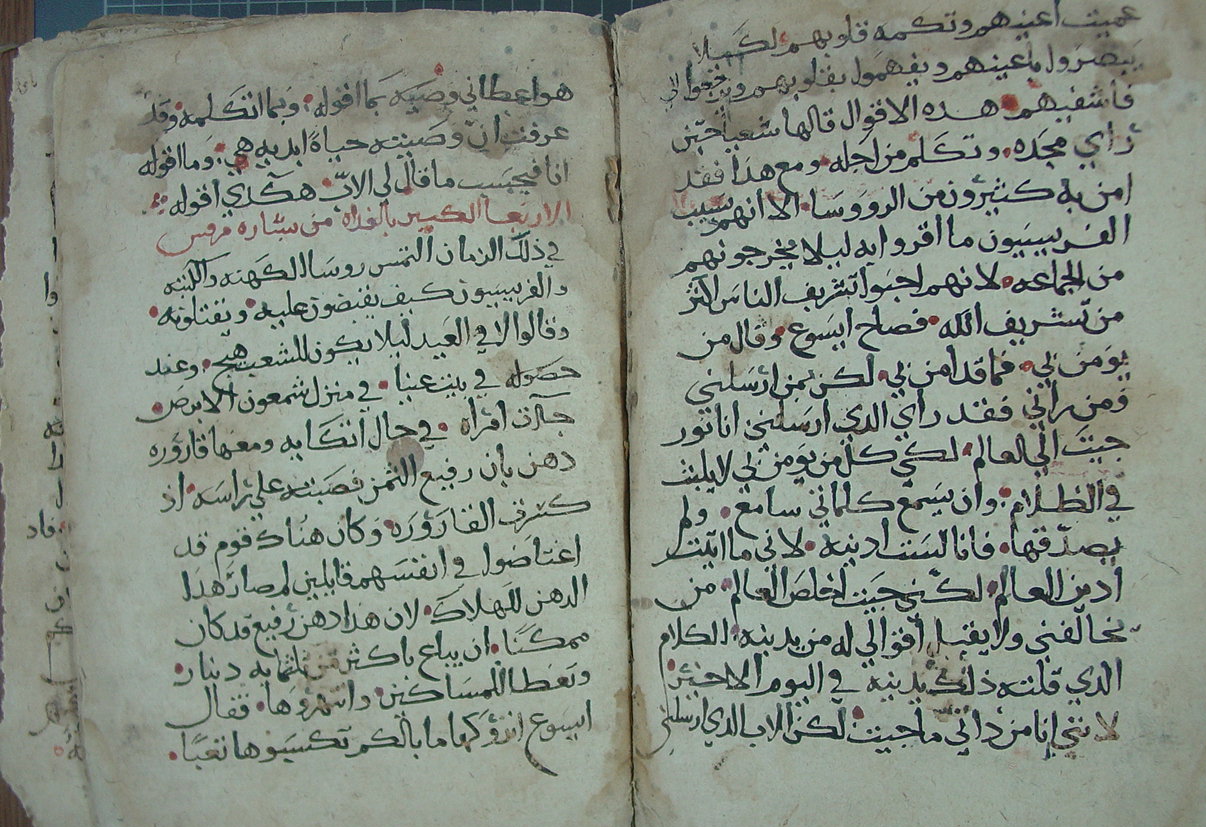 عميت اعينهم وتكمه قلوبهم لكيلا
يبصروا باعينهم ويفهموا بقلوبهم ويرجعوا الى
فاشفيهم هذه الاقوال قالها شعيا حين
راي مجده وتكلم من اجله ومع هذا فقد
امن به كثيرون من الرووسا الا انهم بسبب
الفريسيون ما اقروا به ليلا يخرجونهم
من الجماعه لانهم احبوا تشريف الناس اكثر
من تشريف الله فصاح ايسوع وقال من
يومن بي فما قد امن بي لكن بمن ارسلني
ومن راني فقد راي الدي ارسلني انا نور
جيت الي العالم لكي كل من يومن بي لا يلبث
في الظلام وان يسمع كلماتي سامع ولم
يصدقها فانا لست ادينه لاني ما اتيت
ادين العالم لكنني جيت اخلص العالم من
يخالفني ولا يقبل اقوالي له من يدينه الكلام
الدي قلته ذلك يدينه في اليوم الاخير
لانني انا من داتي ما جيت لكن الاب الدي ارسلني
هو اعطاني وصيه بما اقوله وبما اتكلمه وقد
عرفت ان وصيته حياة ابديه هي وما اقوله
انا فبحسب ما قال لي الاب هكدي اقوله
الاربعا الكبير بالغداه من بشاره مرقس
في ذلك الزمان التمس روسا الكهنه والكتبه
والفريسيون كيف يقبضون عليه ويقتلونه
وقالوا لا في العيد ليلا يكون للشعب هيج وعند
حصوله في بيت عنيا في منزل شمعون الابرص
جآت امراه في حال اتكايه ومعها قاروره
دهن بان رفيع الثمن فصبته علي راسه اد
كسرت القاروره وكان هناك قوم قد
اغتاضوا في انفسهم قايلين لم صار هدا
الدهن للهلاك لان هذا دهن رفيع قد كان
ممكنا ان يباع باكثر من ثلثمايه دينار
وتعطا للمساكين وانتهروها فقال
ايسوع اتركوها ما بالكم تكسبوها تعبا